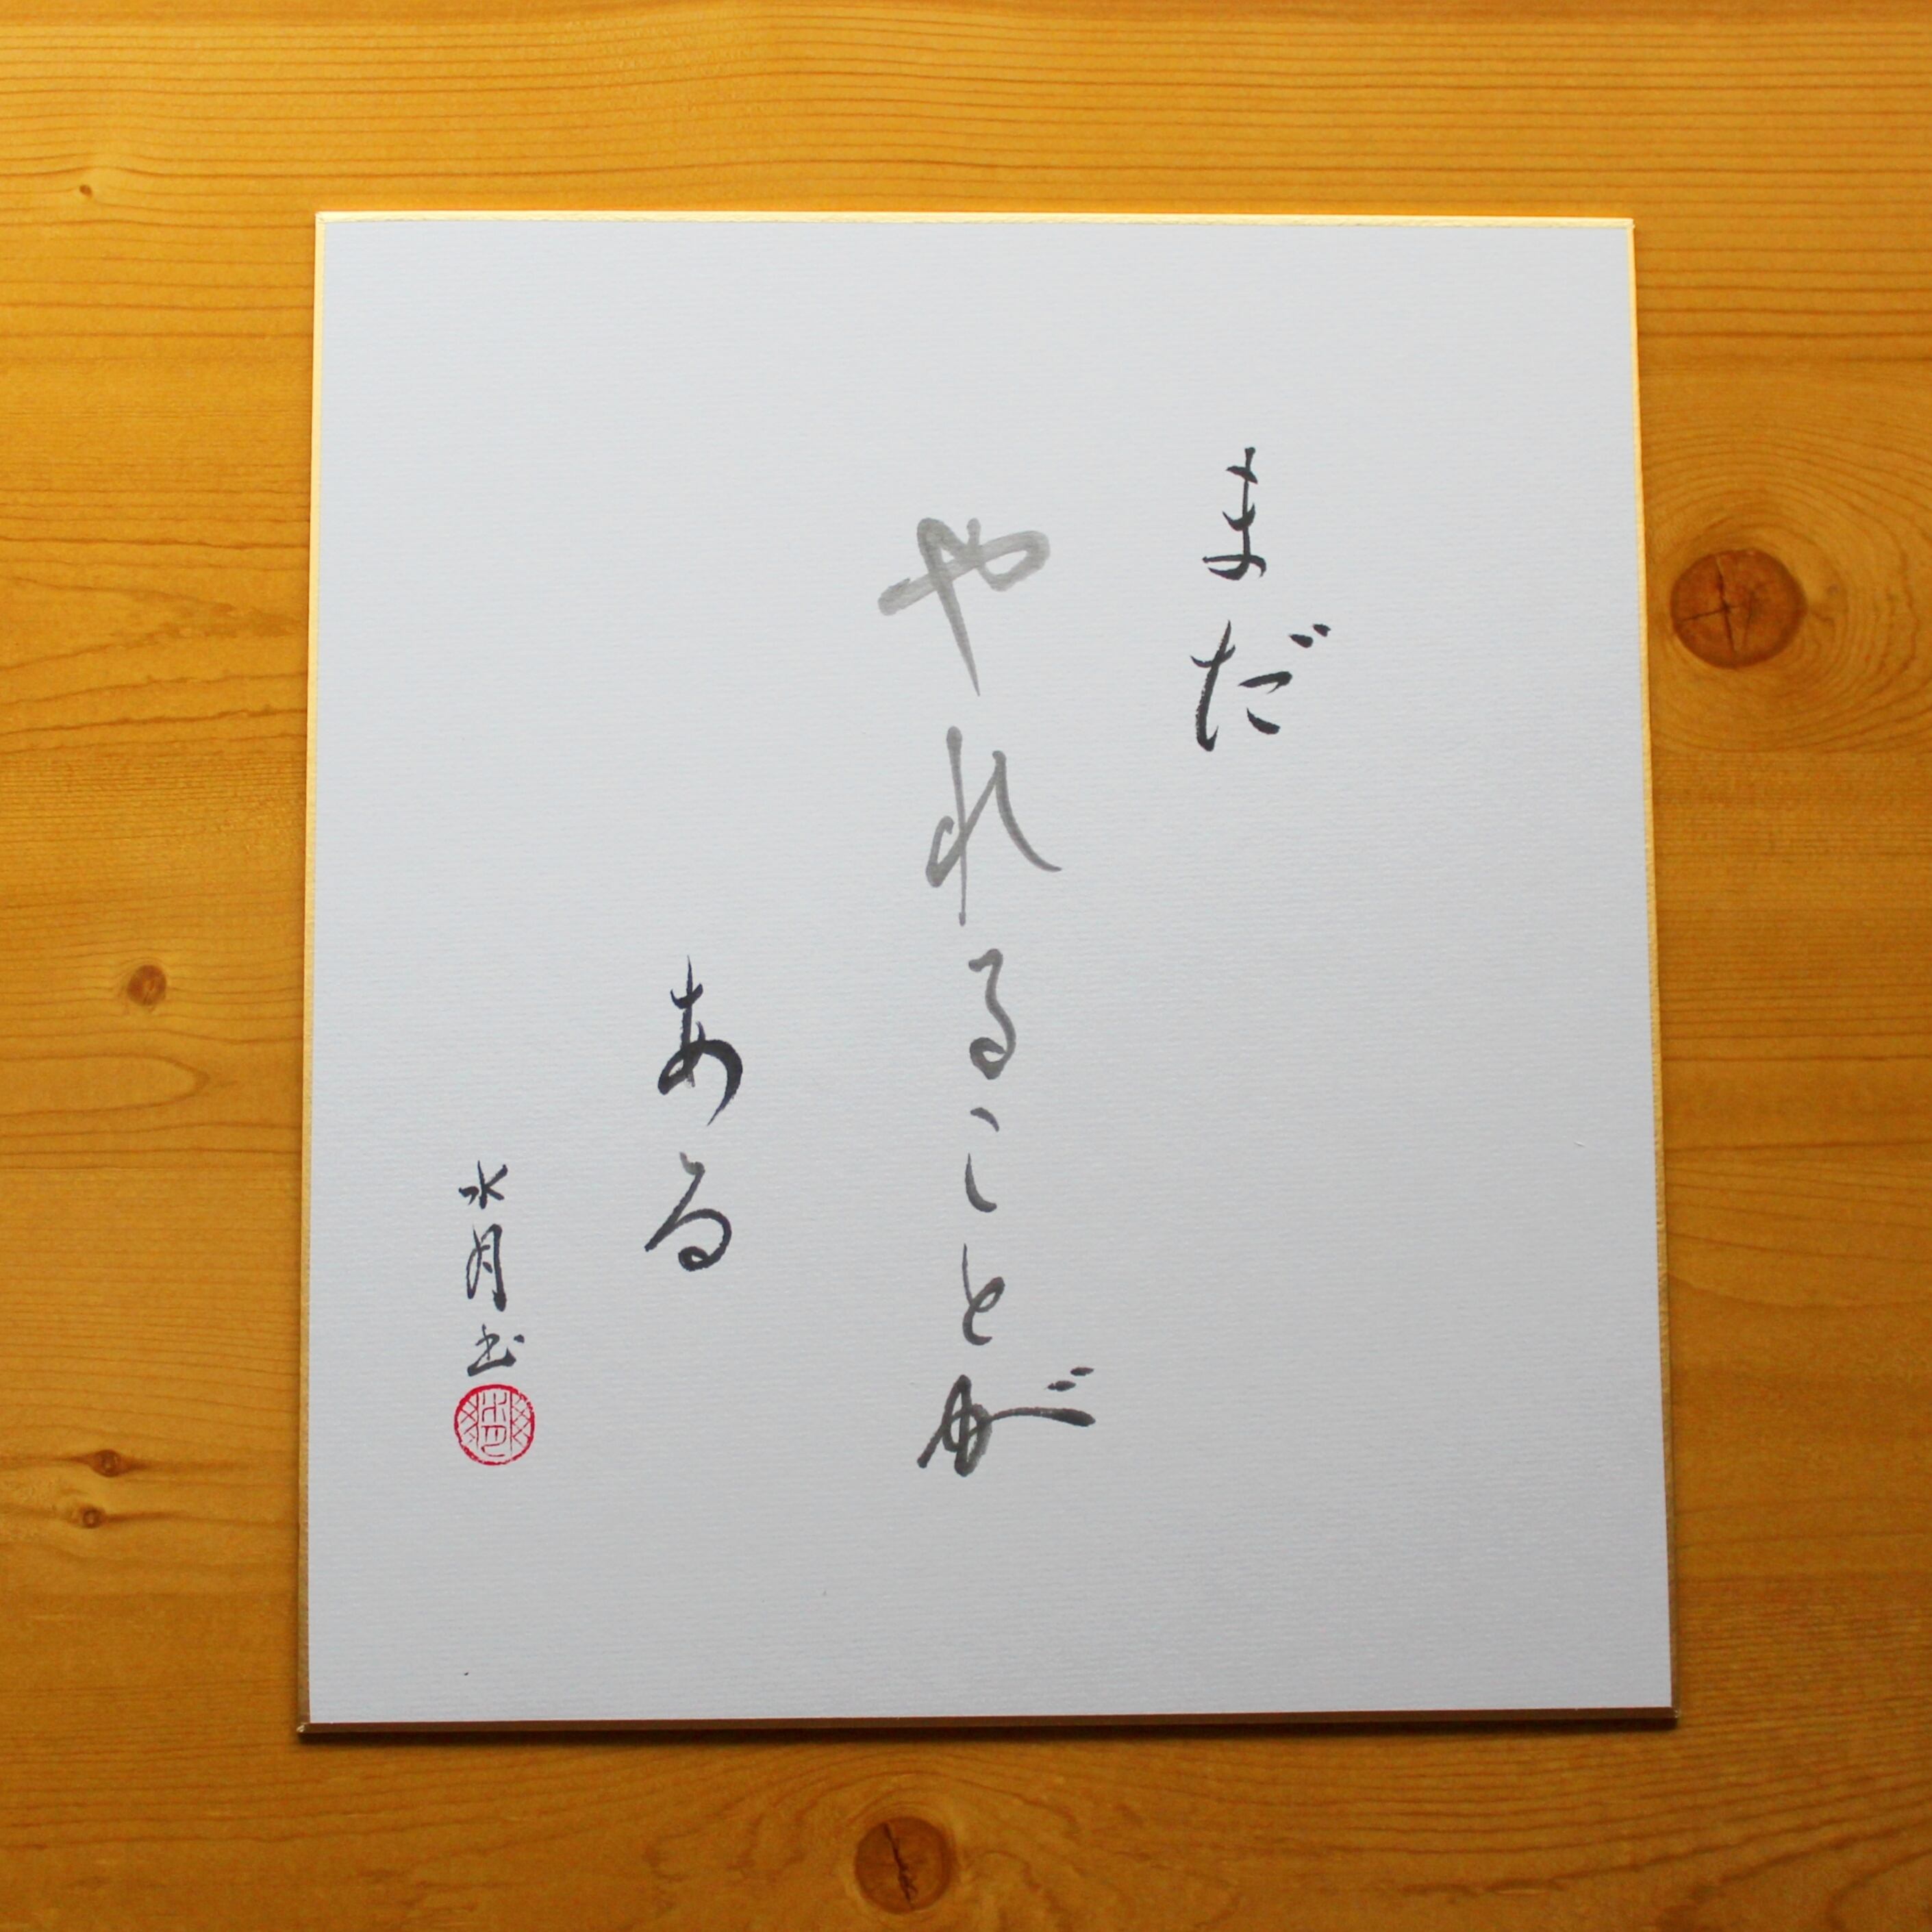 まだ
やれることが
ある
水月書
水月